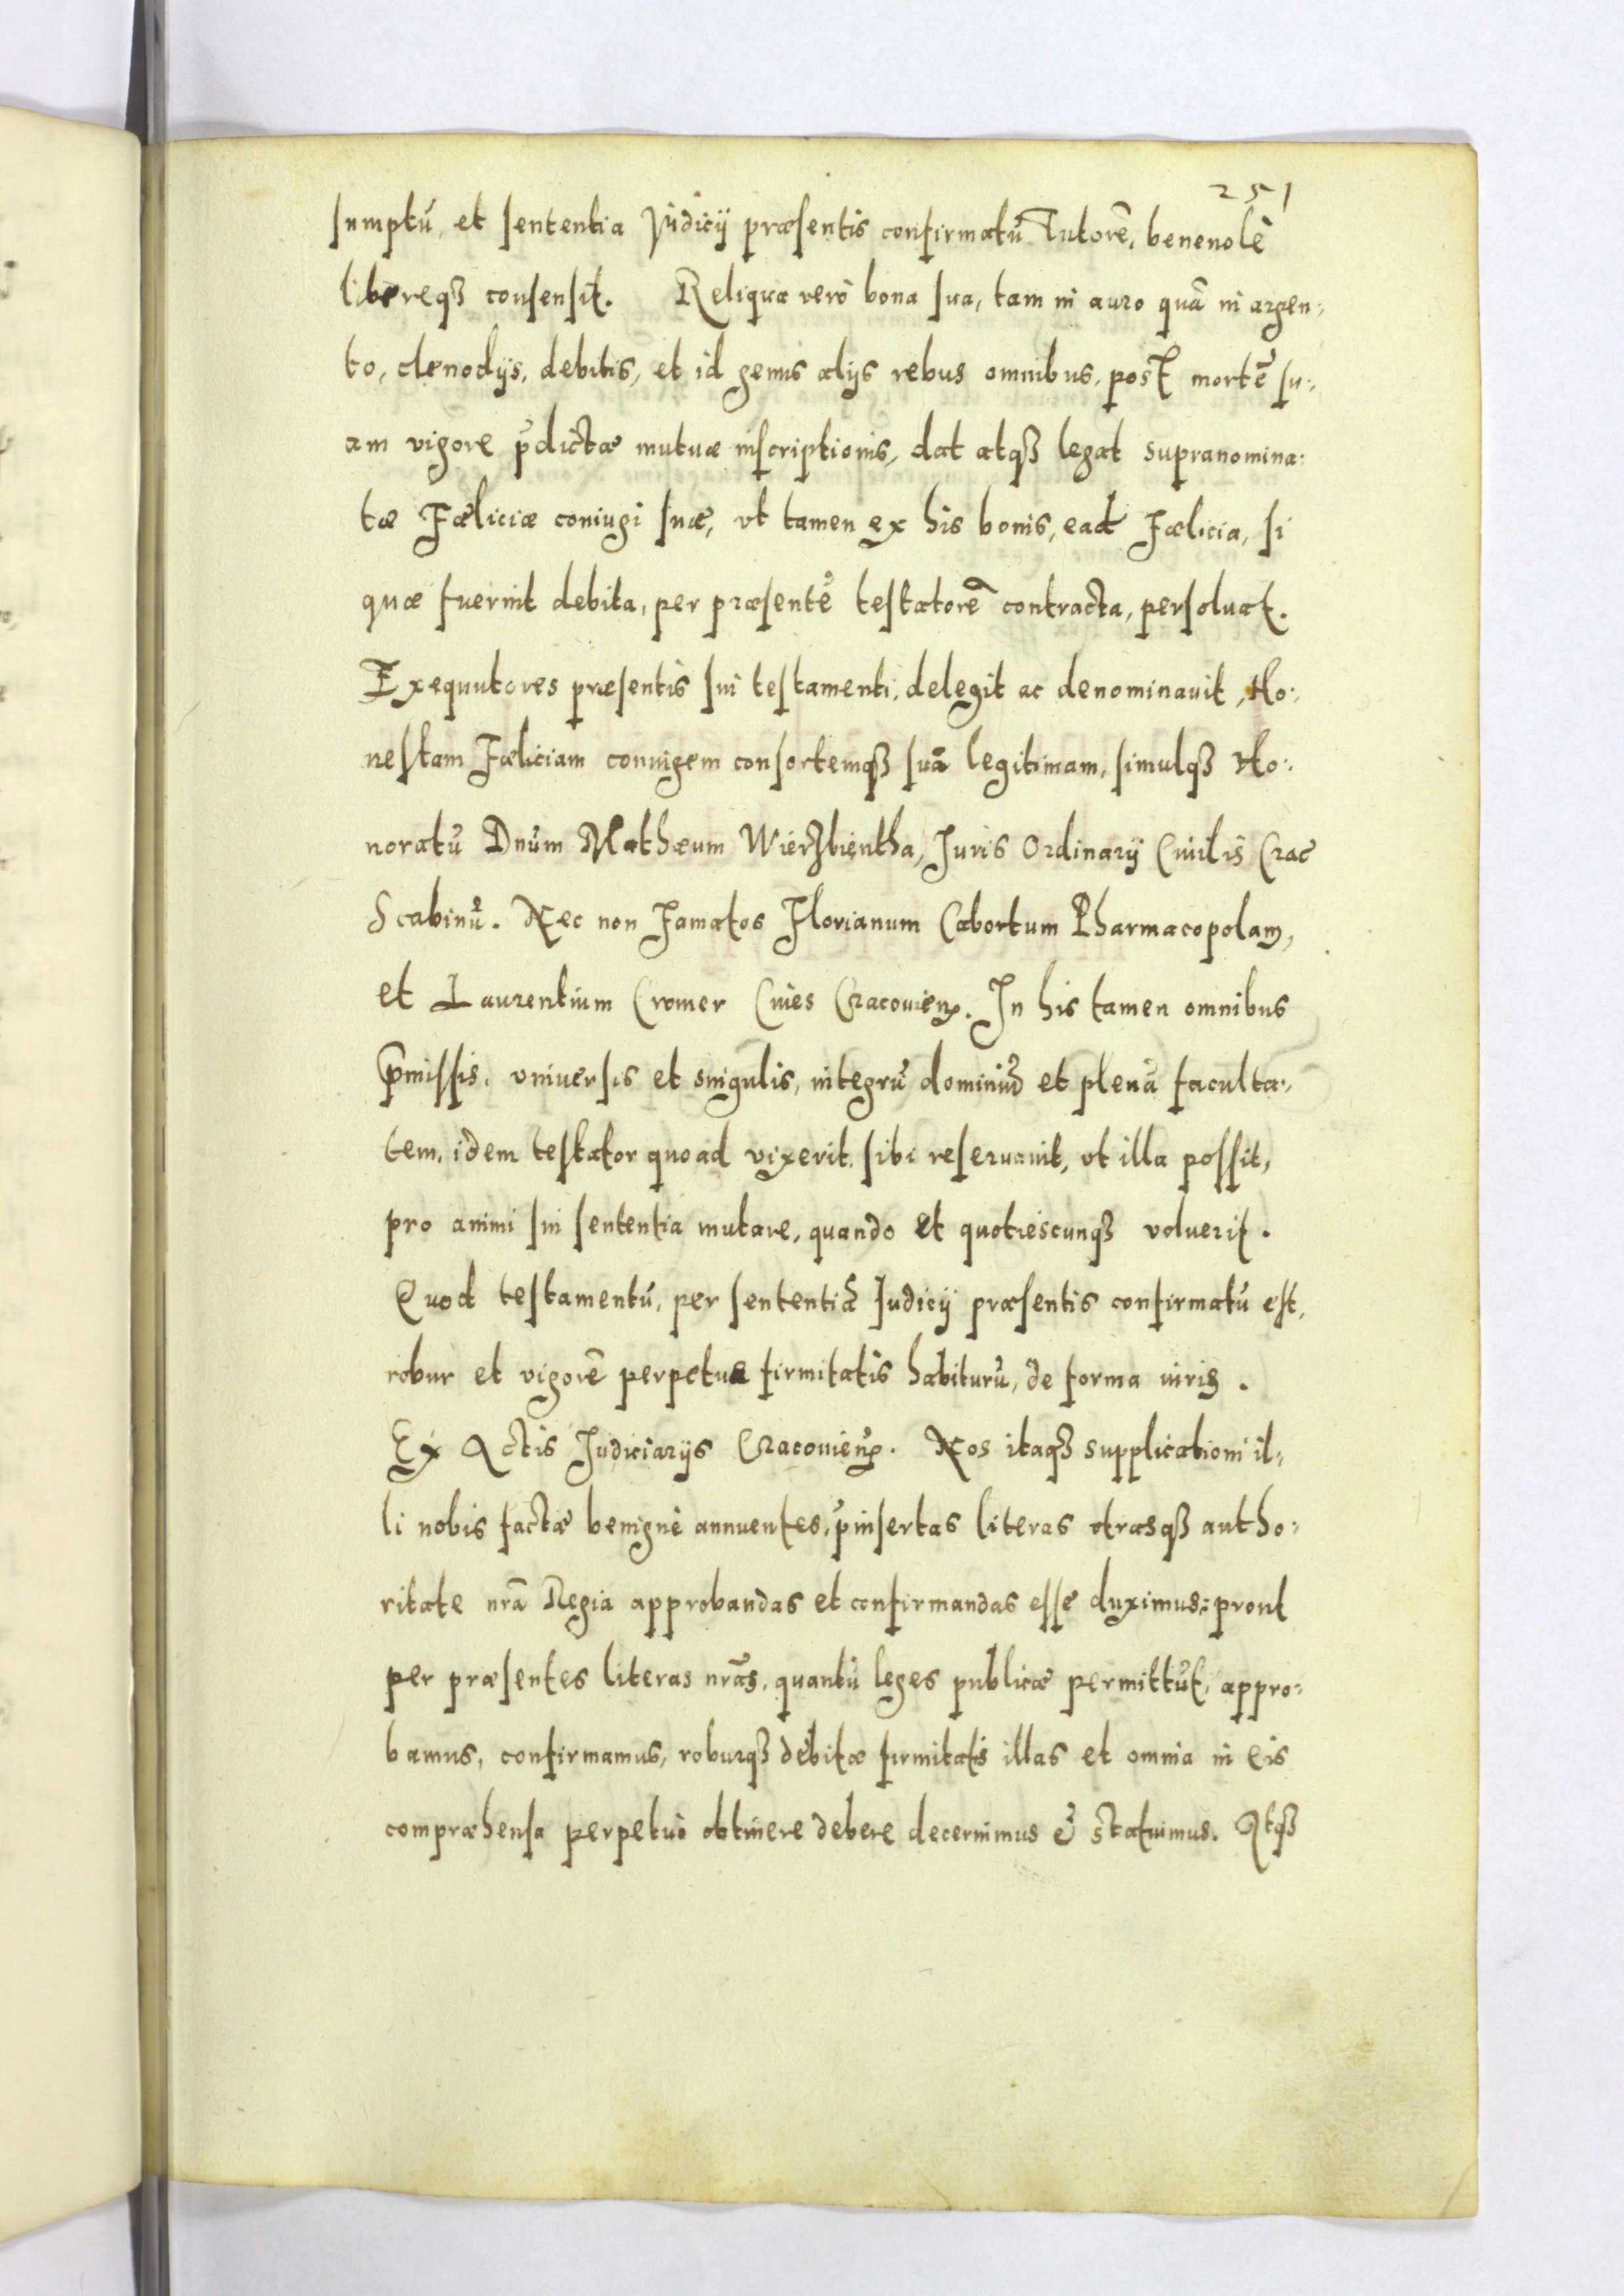 251
sumptū, et sententia Judicij præsentis confirmatū Tutorē, beneuolè
libereqꝫ consensit. Reliqua verò bona sua, tam in auro quā in argen:
to, clenodijs, debitis, et id genus alijs rebus omnibus, post mortē su:
am vigore p̄dictæ mutuæ inscriptionis, dat atqꝫ legat supranomina:
tæ Fæliciæ coniugi suæ, vt tamen ex his bonis, ead Fælicia, si
quæ fuerint debita, per præsentē testatorē contracta, persoluat.
Exequutores præsentis sui testamenti, delegit ac denominauit, Ho:
nestam Fæliciam coniugem consortemqꝫ suā legitimam, simulqꝫ Ho:
noratū Dnūm Mathæum Wierzbientha, Juris Ordinarij Ciuilis Crac
Scabinū. Nec non Famatos Florianum Cabortum Pharmacopolam,
et Laurentium Cromer Ciues Cracouien̄. In his tamen omnibus
p̄missis, vniuersis et singulis, integrū dominiū et plenā faculta:
tem, idem testator quoad vixerit, sibi reseruauit, vt illa possit,
pro animi sui sententia mutare, quando et quotiescunqꝫ voluerit.
Quod testamentū, per sententiā Judicij præsentis confirmatū est,
robur et vigorē perpetuæ firmitatis habiturū, de forma iuris.
Ex Actis Judiciarijs Cracouien̄. Nos itaqꝫ supplicationi il:
li nobis factæ benignè annuentes, p̄insertas literas vtrasqꝫ autho:
ritate nrā Regia approbandas et confirmandas esse duximus: prout
per præsentes literas nrās, quantū leges publicæ permittūt, appro:
bamus, confirmamus, roburqꝫ debitæ firmitatis illas et omnia in eis
compræhensa perpetuò obtinere debere decernimus et statuimus. Atqꝫ